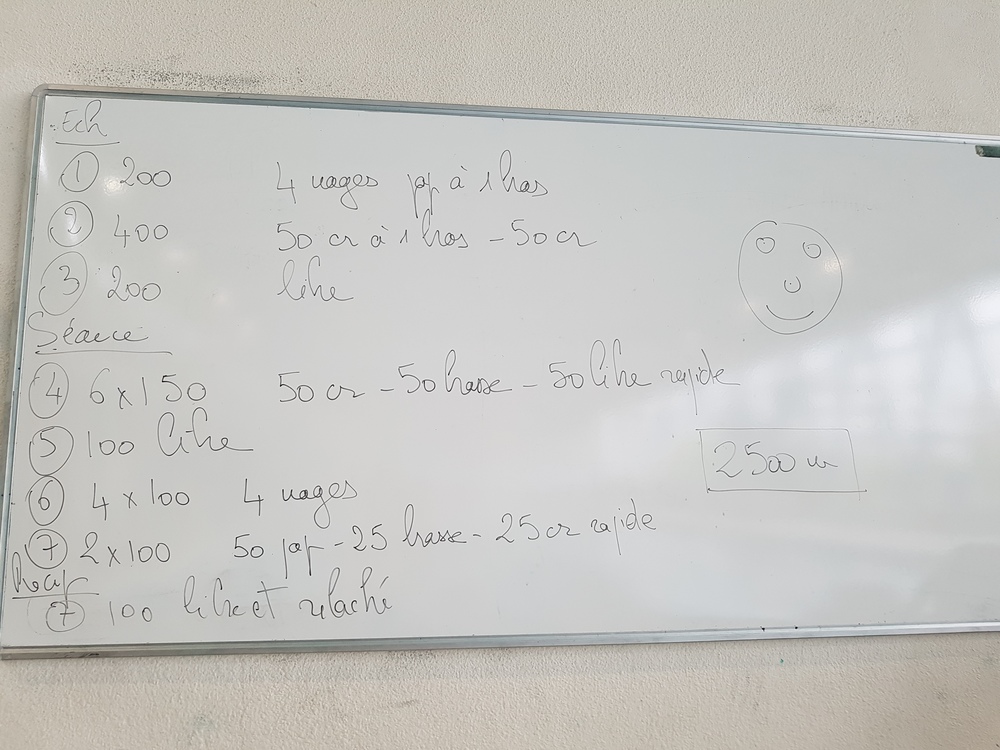 Ech
① 200 4 nages pap à 1 bras
② 400 50 cr à 1 bras - 50 cr
③ 200 libre
Séance
④ 6 x 150 50 cr - 50 brasse - 50 libre rapide
⑤ 100 libre
2500 m
⑥ 4 x 100 4 nages
⑦ 2 x 100 50 pap - 25 brasse - 25 cr rapide
Récup
⑦ 100 libre et relaché